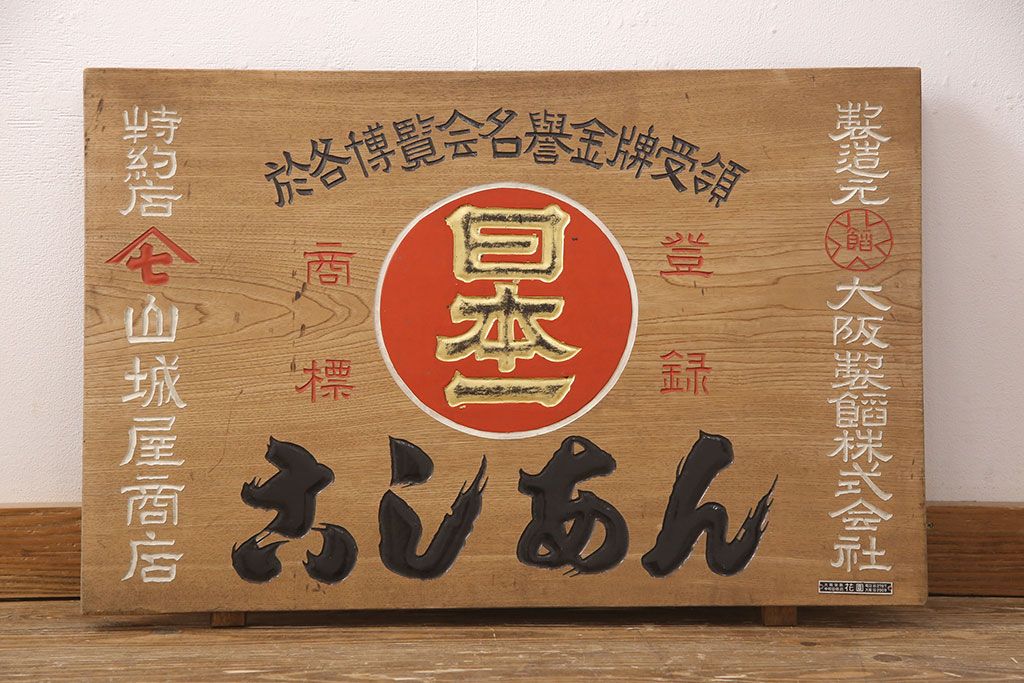 於各博覧会名譽金牌受領
登録
商標
日本一
こしあん
製造元
餡
大阪製餡株式会社
特約店
七
山城屋商店
花園